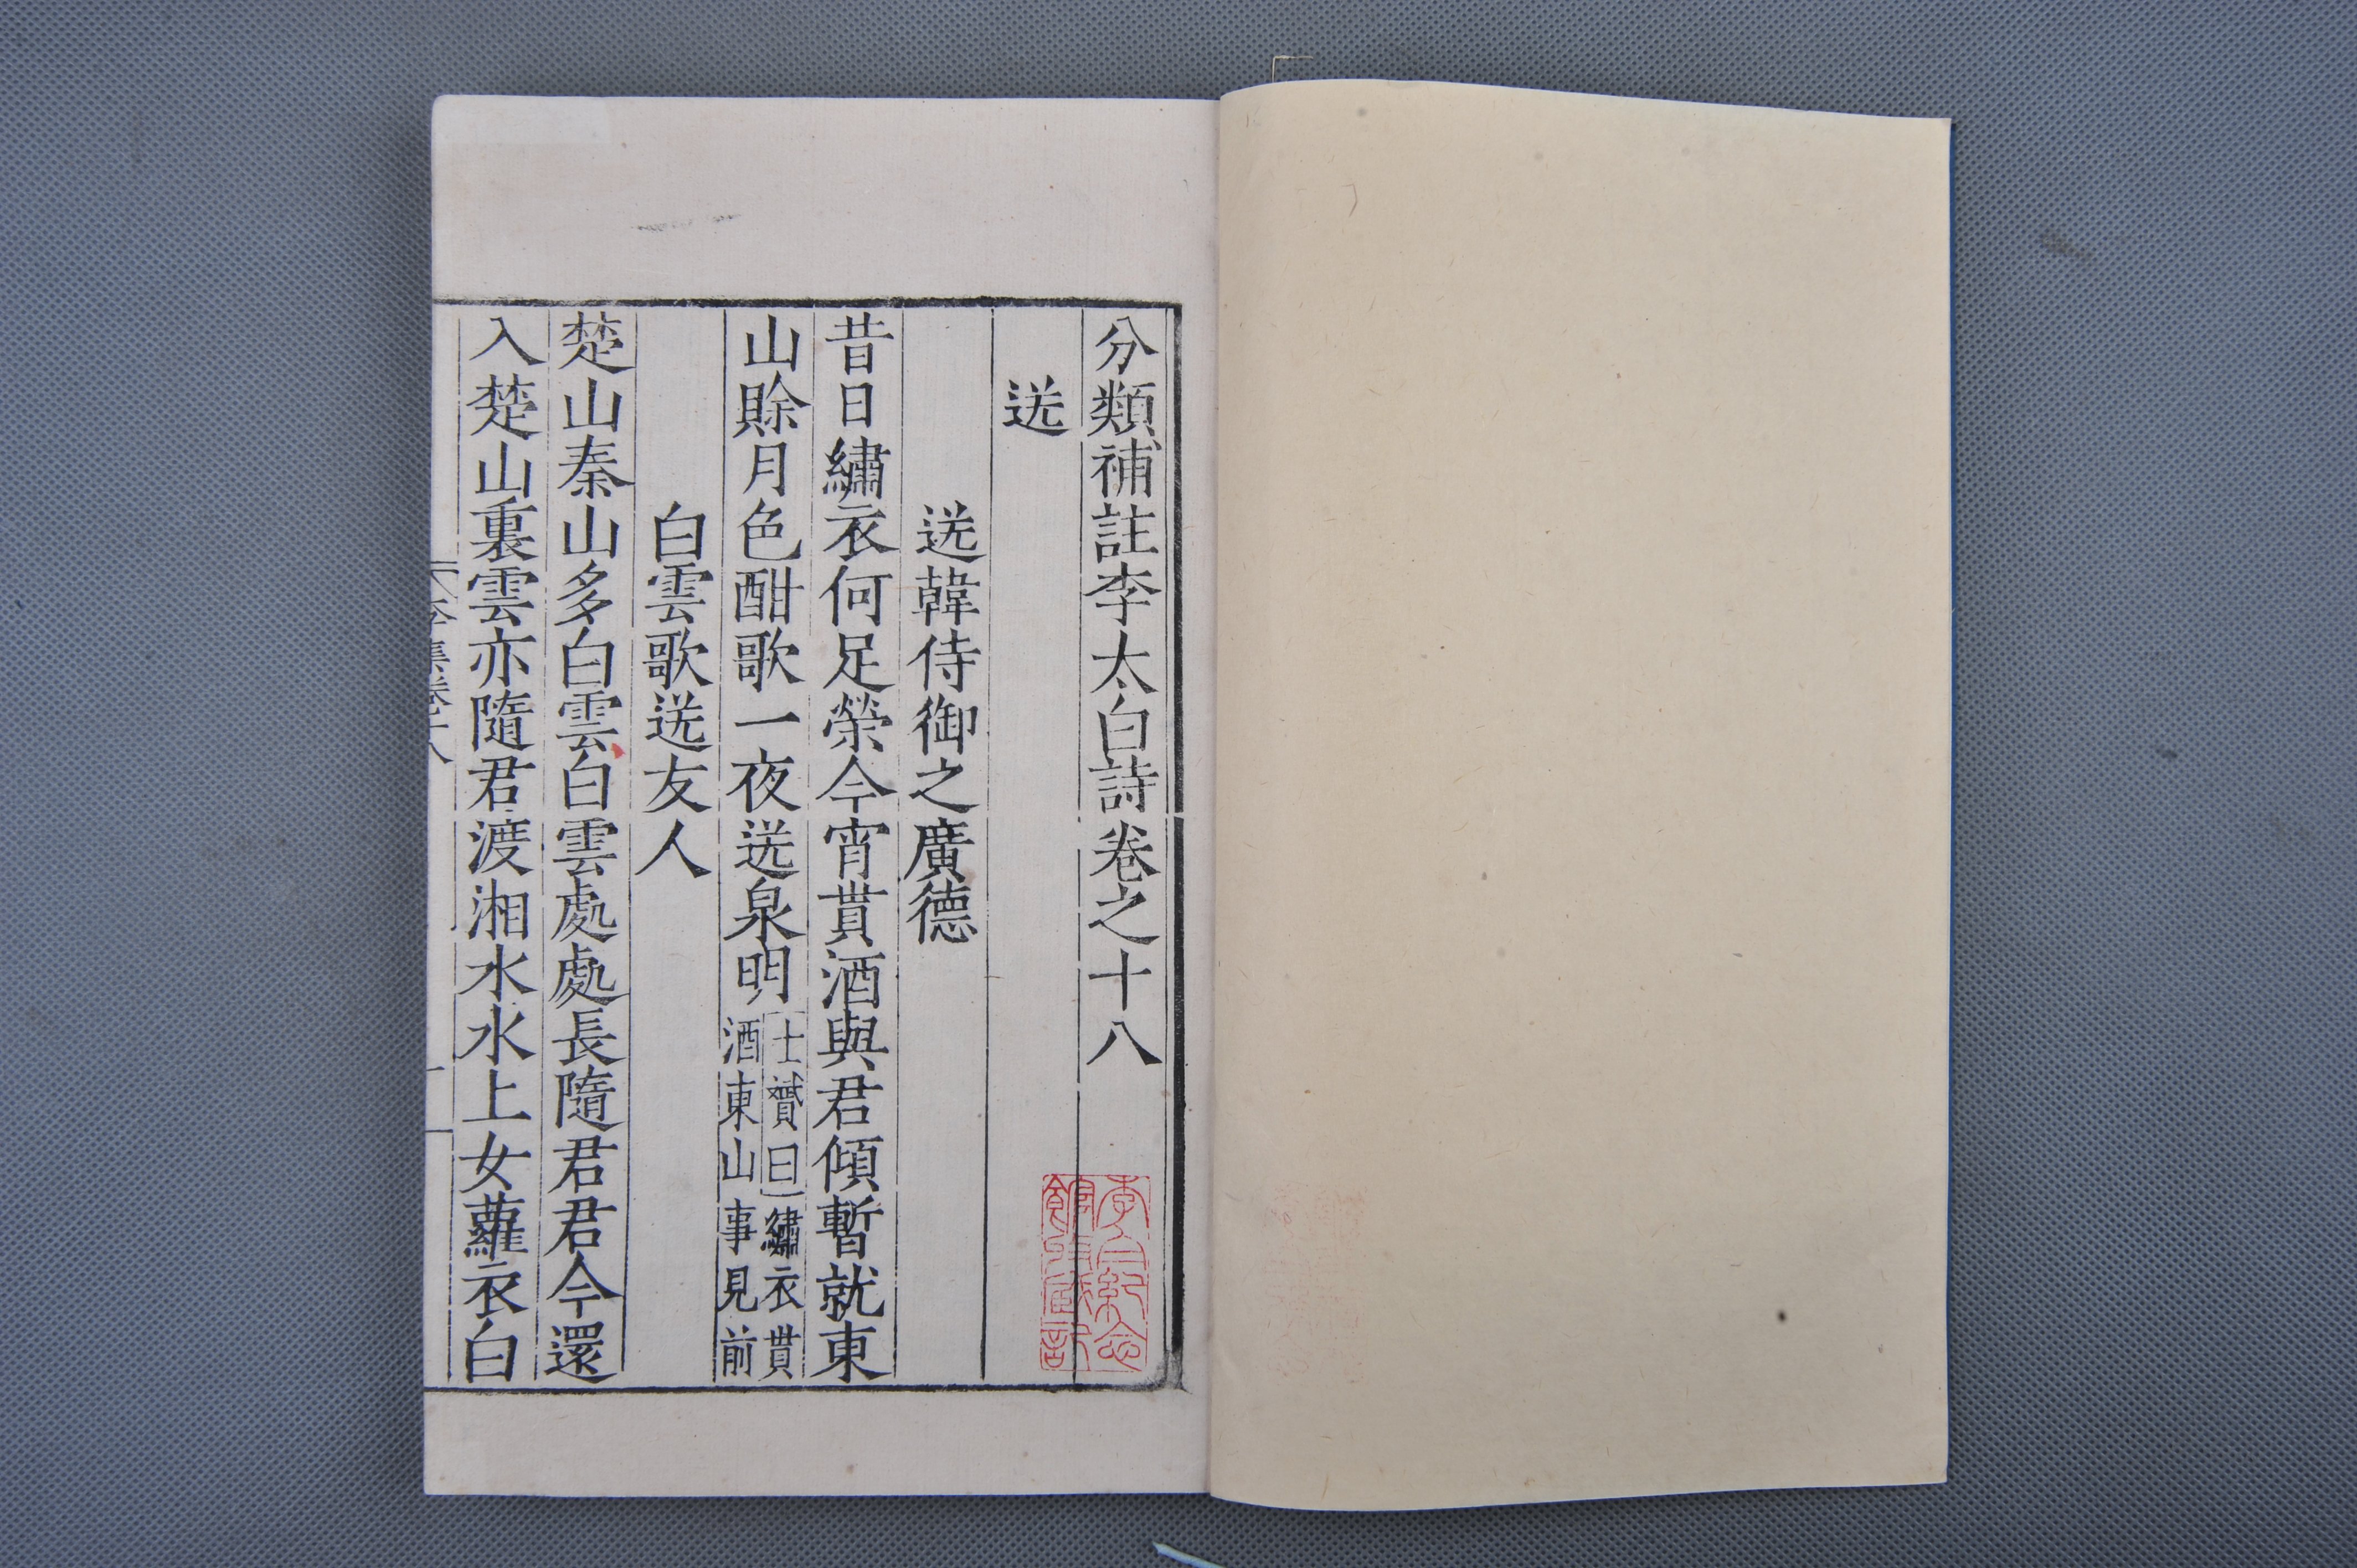 分類補註李太白詩卷之十八
送
送韓侍御之廣德
昔日繡衣何足榮今宵貰酒與君傾暫就東
山賖月色酣歌一夜送泉明
士贇曰繡衣貰
酒東山事見前
白雲歌送友人
楚山秦山多白雲白雲處處長隨君君今還
入楚山裏雲亦隨君渡湘水水上女蘿衣白
李白紀念
館